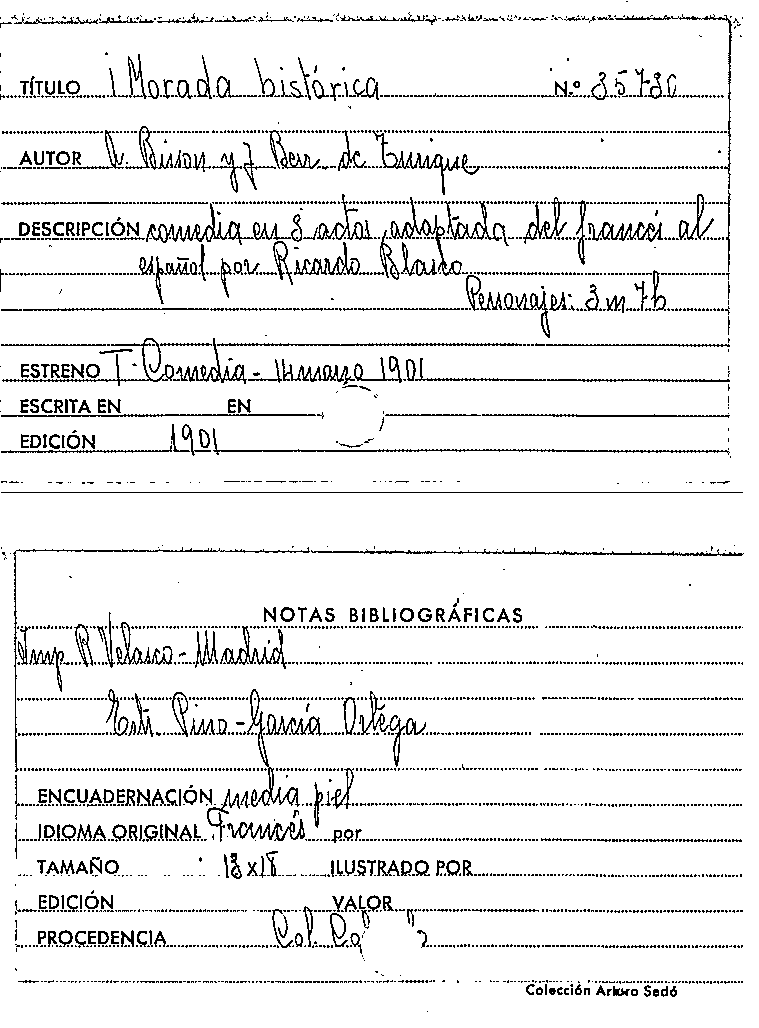 TÍTULO ¡Morada histórica N.º 35730
AUTOR A. Bisson y J Berr de Turrique
DESCRIPCIÓN comedia en 3 actos, adaptada del francés al
español por Ricardo Blasco
Personajes: 3 m 7 h
ESTRENO T. Comedia - 14 marzo 1901
ESCRITA EN EN
EDICIÓN 1901
NOTAS BIBLIOGRÁFICAS
Imp R Velasco - Madrid
Estr. Pino - García Ortega
ENCUADERNACIÓN media piel
IDIOMA ORIGINAL Francés por
TAMAÑO 13 x 18 ILUSTRADO POR
EDICIÓN VALOR
PROCEDENCIA Col.
Colección Arturo Sedó